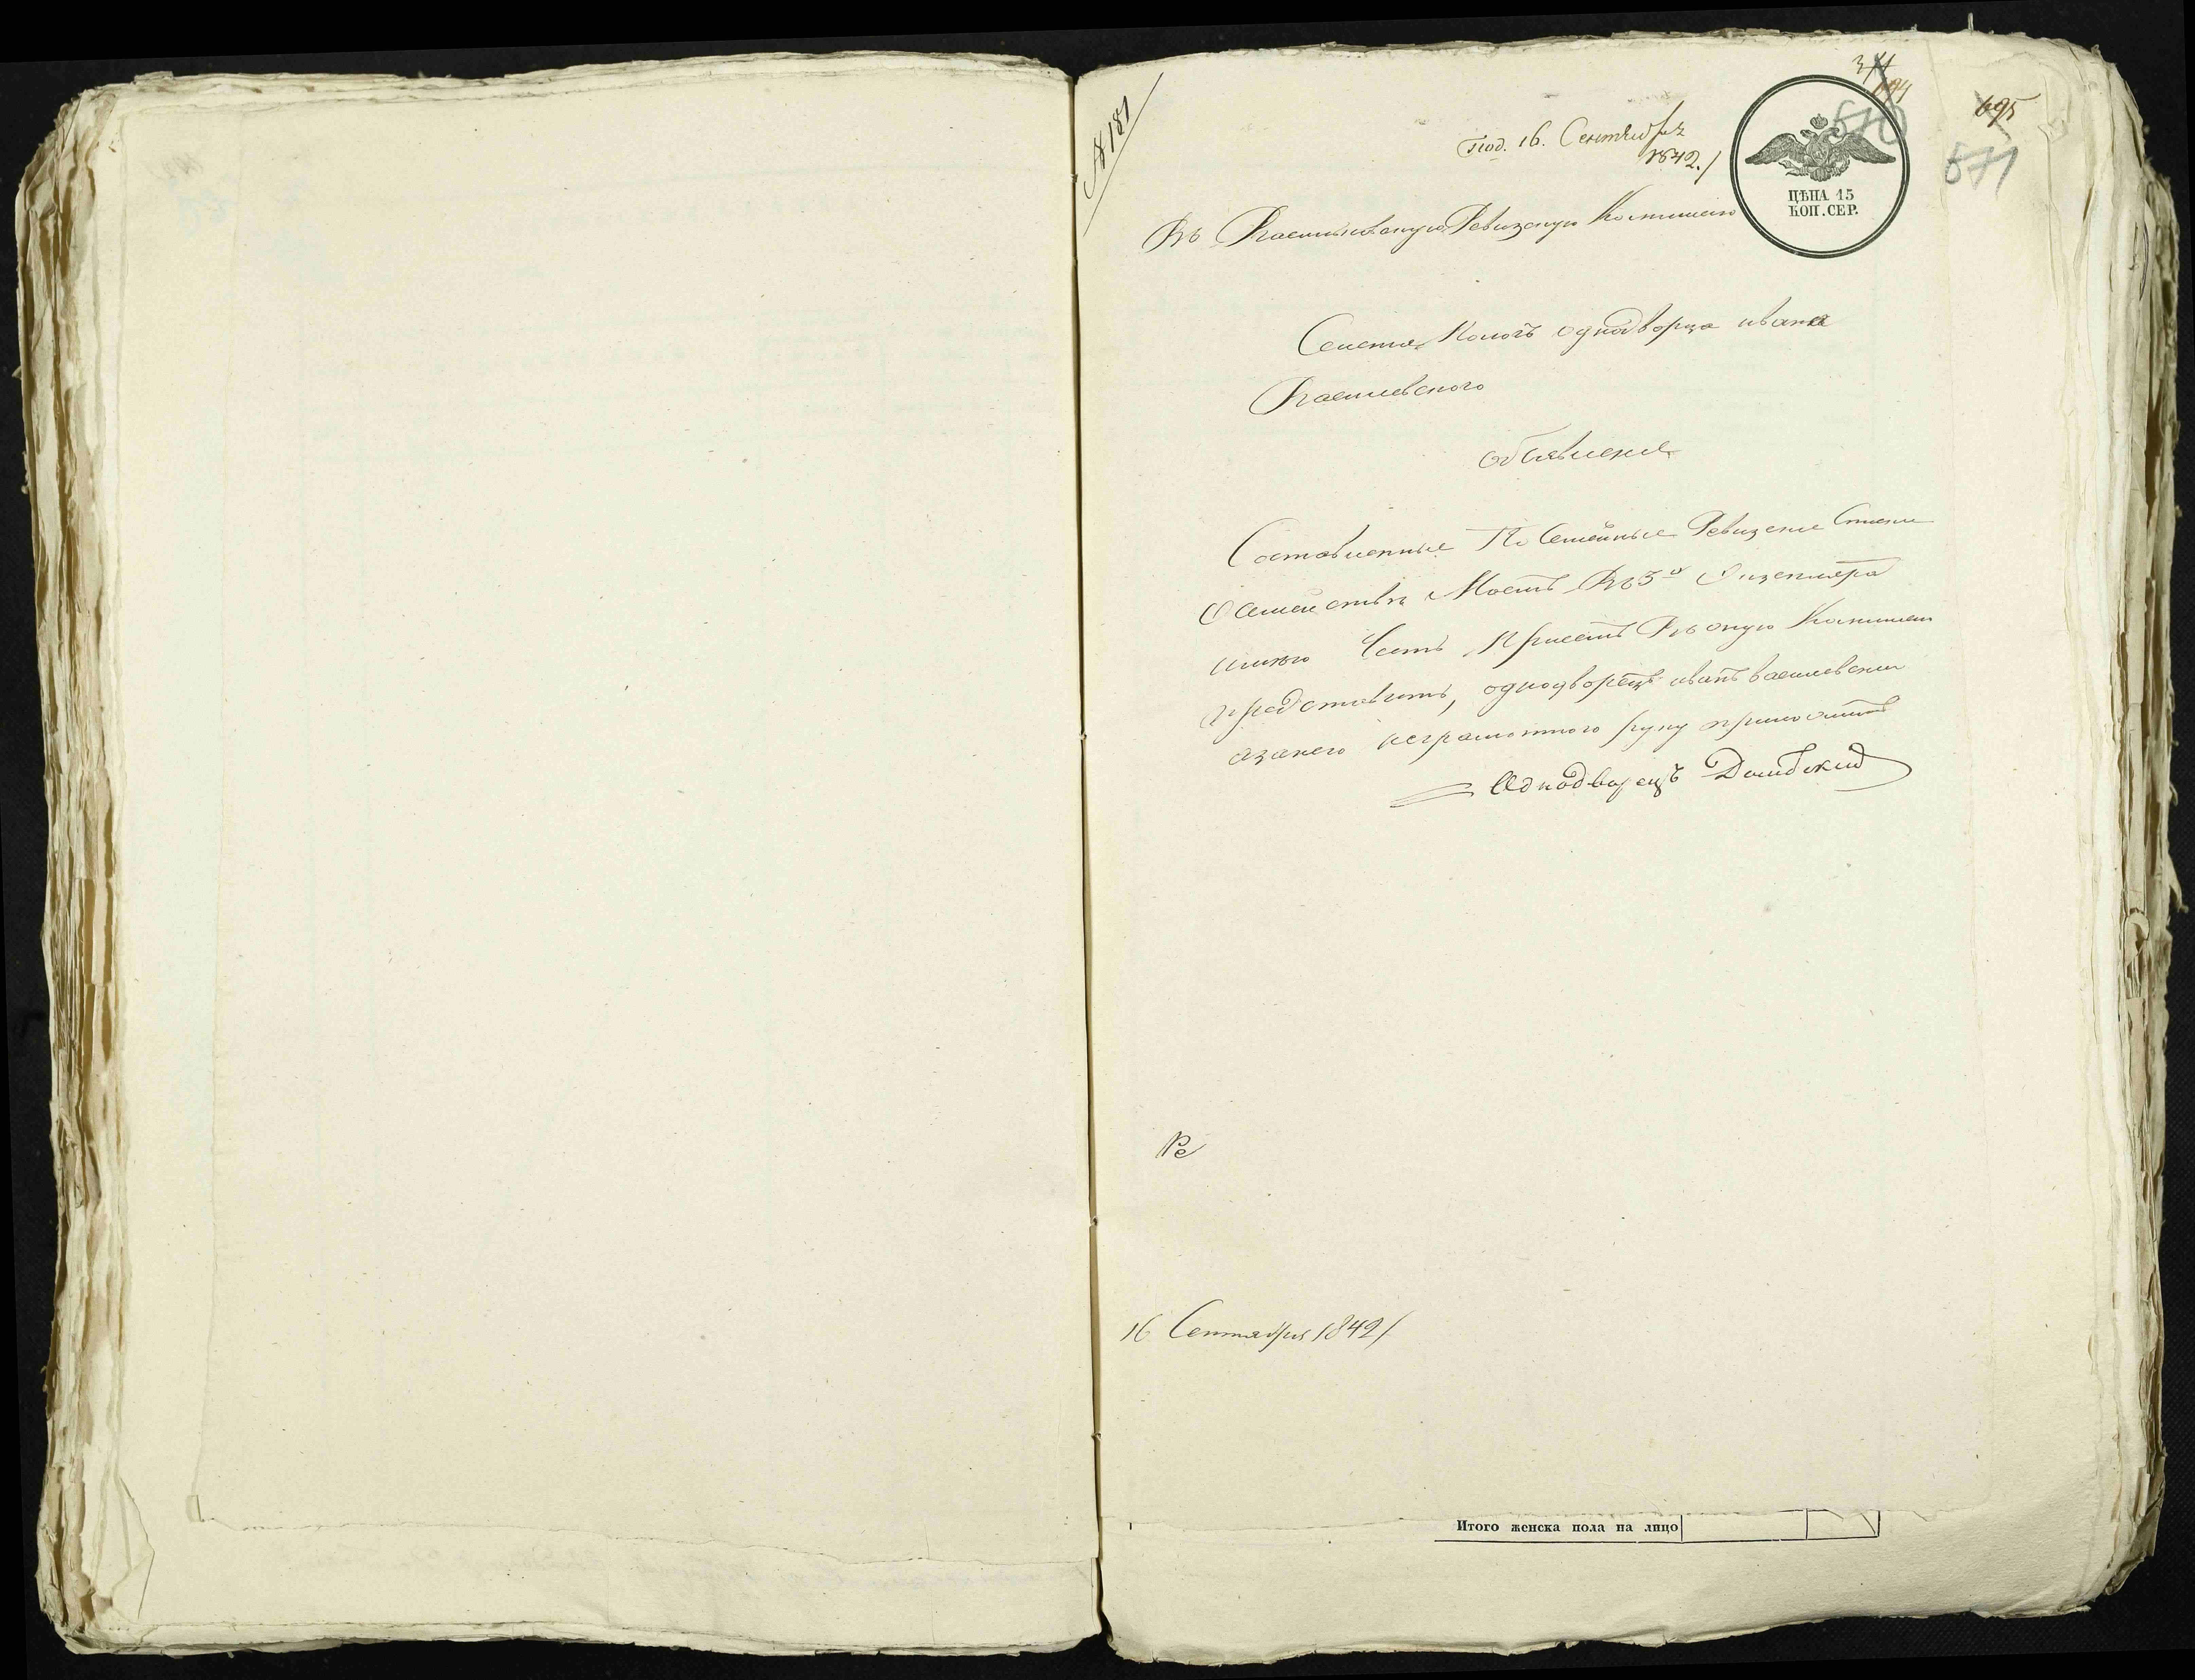 № 181
Под. 16. Сентября
1842.
695
571
ЦѢНА 15
КОП. СЕР.
Въ Васильковскую Ревизскую Коммисію
однодворца ивана
Василевского
объявление
Составленные По Семейные Ревизские
О Семействе Въ 3х Экземпляра
имею Честь При сем Въ оную Коммисию
представить, однодворец иван василевский
азанего неграмотного руку приложил
Однодворецъ Домбский
Ре
16 Сентября 1842
Итого женска пола на лицо